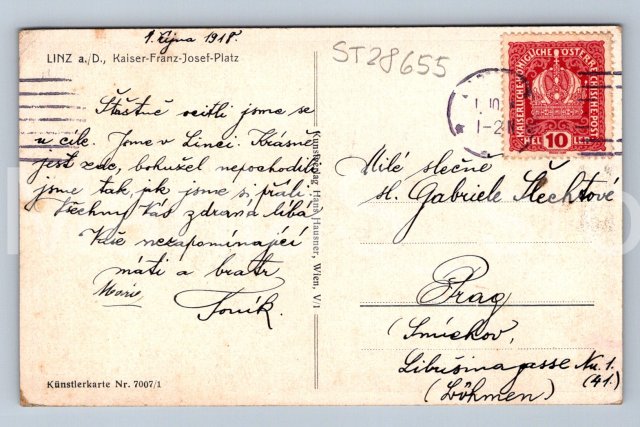 1. října 1918.
LINZ a./D., Kaiser-Franz-Josef-Platz
ST28655
Šťastně ocitli jsme se
u cíle. Jsme v Linci. Krásně
jest zde, bohužel nepochodili
jsme tak, jak jsme si přáli.
Všechny Vás zdraví líbá
Vaše nezapomínající
máti a bratr
Marie Toník.
Künstlerkarte Nr. 7007/1
Kunstverlag Hans Hausner, Wien, V/1
KAISERLICHE KÖNIGLICHE ÖSTERREICHISCHE POST
10
Milé slečně
sl. Gabriele Šlechtové
Prag
(Smíchov,
Libušinagasse Nu. 1.
(41.)
(Böhmen)